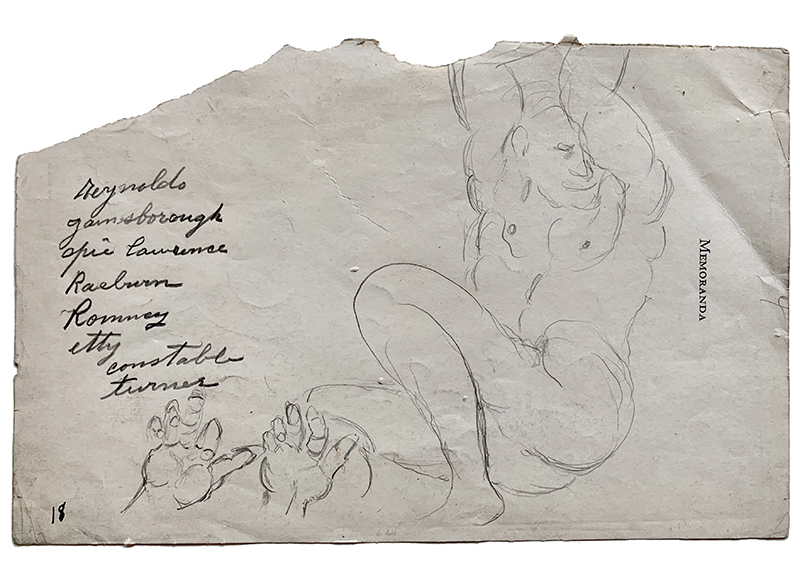 Reynolds
gainsborough
opie lawrence
Raeburn
Romney
etty
constable
turner
18
MEMORANDA